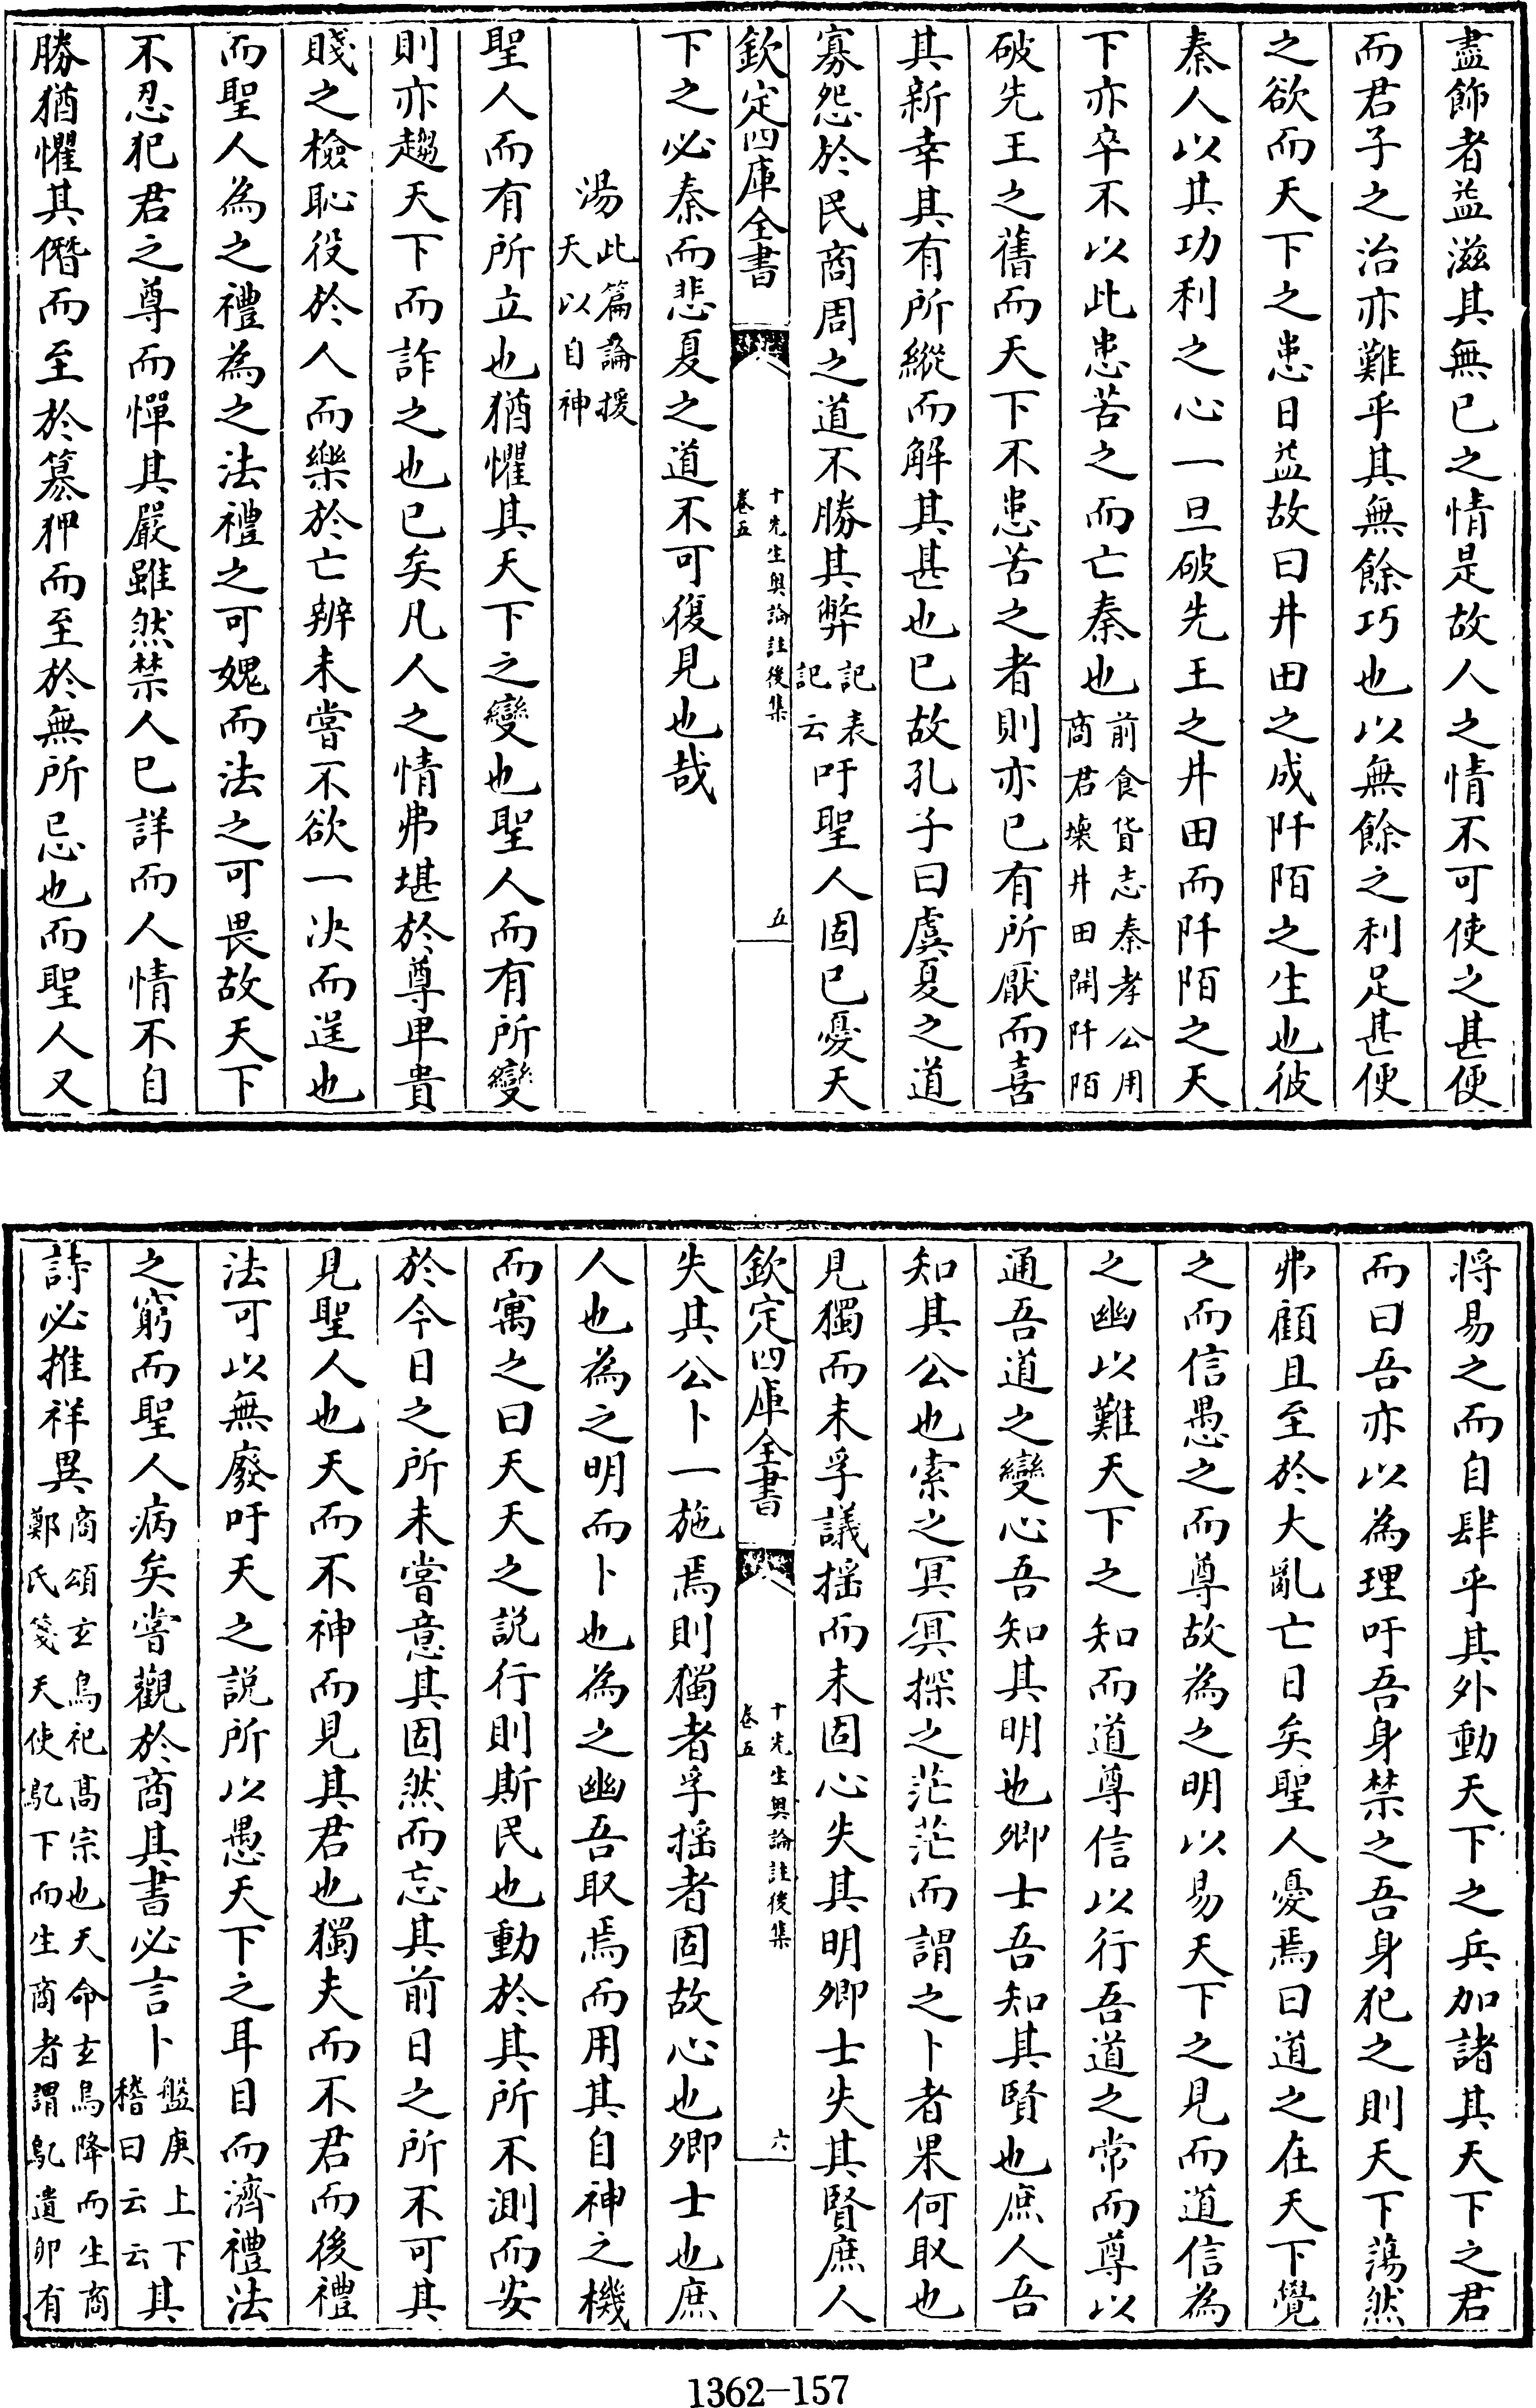 盡飾者益滋其無已之情是故人之情不可使之甚便
而君子之治亦難乎其無餘巧也以無餘之利足甚便
之欲而天下之患日益故曰井田之成阡陌之生也彼
秦人以其功利之心一旦破先王之井田而阡陌之天
下亦卒不以此患苦之而亡秦也前食貨志秦孝公用商君壞井田開阡陌
破先王之舊而天下不患苦之者則亦已有所厭而喜
其新幸其有所縱而解其甚也已故孔子曰虞夏之道
寡怨於民商周之道不勝其弊記表記云吁聖人固已憂天
欽定四庫全書
十先生奧論註後集
卷五
五
下之必秦而悲夏之道不可復見也哉
湯此篇論援天以自神
聖人而有所立也猶懼其天下之變也聖人而有所變
則亦趨天下而詐之也已矣凡人之情弗堪於尊卑貴
賤之檢恥役於人而樂於亡辨未嘗不欲一決而逞也
而聖人為之禮為之法禮之可媿而法之可畏故天下
不忍犯君之尊而憚其嚴雖然禁人已詳而人情不自
勝猶懼其僭而至於簒狎而至於無所忌也而聖人又
將易之而自肆乎其外動天下之兵加諸其天下之君
而曰吾亦以為理吁吾身禁之吾身犯之則天下蕩然
弗顧且至於大亂亡日矣聖人憂焉曰道之在天下覺
之而信愚之而尊故為之明以易天下之見而道信為
之幽以難天下之知而道尊信以行吾道之常而尊以
通吾道之變心吾知其明也卿士吾知其賢也庶人吾
知其公也索之冥冥探之茫茫而謂之卜者果何取也
見獨而未孚議揺而未固心失其明卿士失其賢庶人
欽定四庫全書
十先生奧論註後集
卷五
六
失其公卜一施焉則獨者孚揺者固故心也卿士也庶
人也為之明而卜也為之幽吾取焉而用其自神之機
而寓之曰天天之説行則斯民也動於其所不測而安
於今日之所未嘗意其固然而忘其前日之所不可其
見聖人也天而不神而見其君也獨夫而不君而後禮
法可以無廢吁天之説所以愚天下之耳目而濟禮法
之窮而聖人病矣嘗觀於商其書必言卜盤庚上下稽曰云云其
詩必推祥異商頌玄鳥祀高宗也天命玄鳥降而生商鄭氏箋天使鳦下而生商者謂鳦遺卵有
1362-157